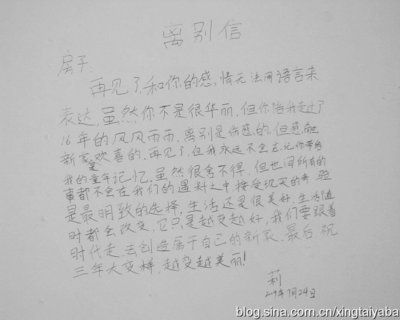 离别信
房子:
再见了,和你的感情无法用语言来
表达,虽然你不是很华丽,但你陪我走过了
16年的风风雨雨,离别是伤感的,但想
新家是欢喜的,再见了,但我永远不会忘记你带给
我的童年记忆,虽然很舍不得,但世间所有的
事都不会在我们的遇料之中接受现实的考验
是最明致的选择,生活还是很美好,生活随
时都会改变,它只是越变越好,我们要跟着
时代走,去创造属于自己的新家,最后祝
三年大变样,越变越美丽!
莉
7月24日
blog.sina.com.cn/xingtaiyaba